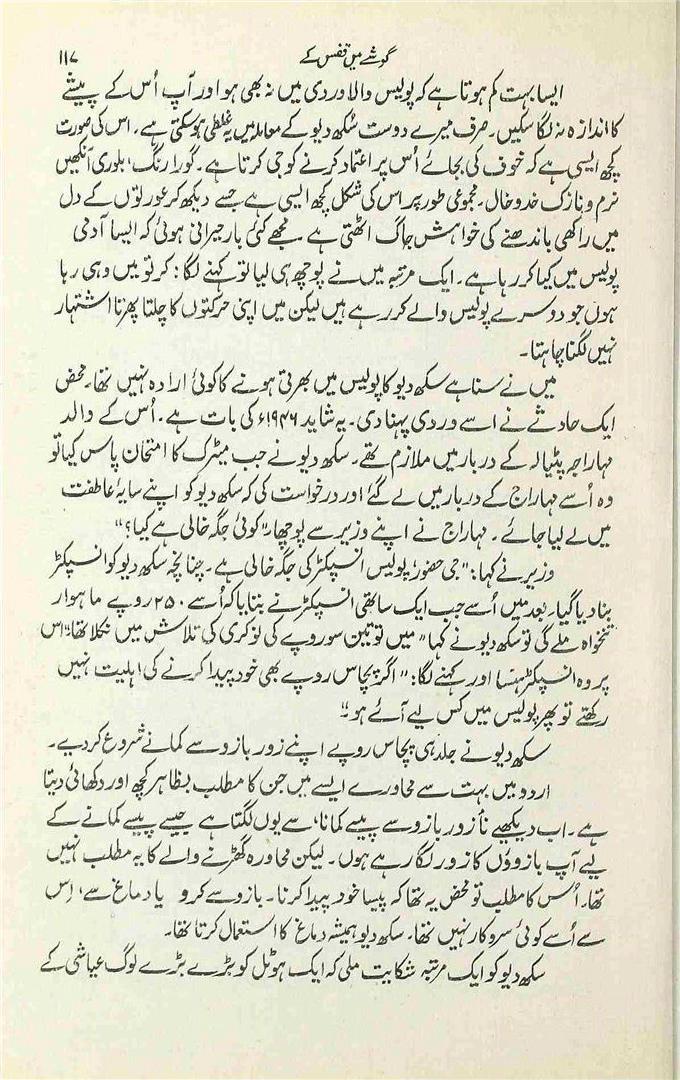 گوشے میں قفس کے ۱۱۷
ایسا بہت کم ہوتا ہے کہ پولیس والا وردی میں نہ بھی ہو اور آپ اُس کے پیشے
کا اندازہ نہ لگا سکیں۔ صرف میرے دوست سُکھ دیو کے معاملہ میں یہ غلطی ہو سکتی ہے۔ اس کی صورت
کچھ ایسی ہے کہ خوف کی بجائے اُس پر اعتماد کرنے کو جی کرتا ہے۔ گورا رنگ، بلوری آنکھیں
نرم و نازک خدوخال۔ مجموعی طور پر اس کی شکل کچھ ایسی ہے جسے دیکھ کر عورتوں کے دل
میں راکھی باندھنے کی خواہش جاگ اٹھتی ہے۔ مجھے کئی بار حیرانی ہوئی کہ ایسا آدمی
پولیس میں کیا کر رہا ہے۔ ایک مرتبہ میں نے پوچھ ہی لیا تو کہنے لگا: کر تو میں وہی رہا
ہوں جو دوسرے پولیس والے کر رہے ہیں لیکن میں اپنی حرکتوں کا چلتا پھرتا اشتہار
نہیں لگنا چاہتا۔
میں نے سنا ہے سکھ دیو کا پولیس میں بھرتی ہونے کا کوئی ارادہ نہیں تھا۔ محض
ایک حادثے نے اسے وردی پہنا دی۔ یہ شاید ۱۹۴۶ء کی بات ہے۔ اُس کے والد
مہاراجہ پٹیالہ کے دربار میں ملازم تھے۔ سکھ دیو نے جب میٹرک کا امتحان پاس کیا تو
وہ اُسے مہاراج کے دربار میں لے گئے اور درخواست کی کہ سکھ دیو کو اپنے سایۂ عاطفت
میں لے لیا جائے۔ مہاراج نے اپنے وزیر سے پوچھا: "کوئی جگہ خالی ہے کیا؟"
وزیر نے کہا: "جی حضور، پولیس انسپکٹر کی جگہ خالی ہے۔ چنانچہ سکھ دیو کو انسپکٹر
بنا دیا گیا۔ بعد میں اُسے جب ایک ساتھی انسپکٹر نے بتایا کہ اُسے ۲۵۰ روپے ماہوار
تنخواہ ملے گی تو سکھ دیو نے کہا "میں تو تین سو روپے کی نوکری کی تلاش میں نکلا تھا۔" اس
پر وہ انسپکٹر ہنسا اور کہنے لگا: "اگر پچاس روپے بھی خود پیدا کرنے کی اہلیت نہیں
رکھتے تو پھر پولیس میں کس لیے آئے ہو۔"
سکھ دیو نے جلد ہی پچاس روپے اپنے زور بازو سے کمانے شروع کر دیے۔
اردو میں بہت سے محاورے ایسے ہیں جن کا مطلب بظاہر کچھ اور دکھائی دیتا
ہے۔ اب دیکھیے نا زور بازو سے پیسے کمانا، سے یوں لگتا ہے جیسے پیسے کمانے کے
لیے آپ بازوؤں کا زور لگا رہے ہوں۔ لیکن محاورہ گھڑنے والے کا یہ مطلب نہیں
تھا۔ اُس کا مطلب تو محض یہ تھا کہ پیسا خود پیدا کرنا۔ بازو سے کرو یا دماغ سے، اِس
سے اُسے کوئی سروکار نہیں تھا۔ سکھ دیو ہمیشہ دماغ کا استعمال کرتا تھا۔
سکھ دیو کو ایک مرتبہ شکایت ملی کہ ایک ہوٹل کو بڑے بڑے لوگ عیاشی کے